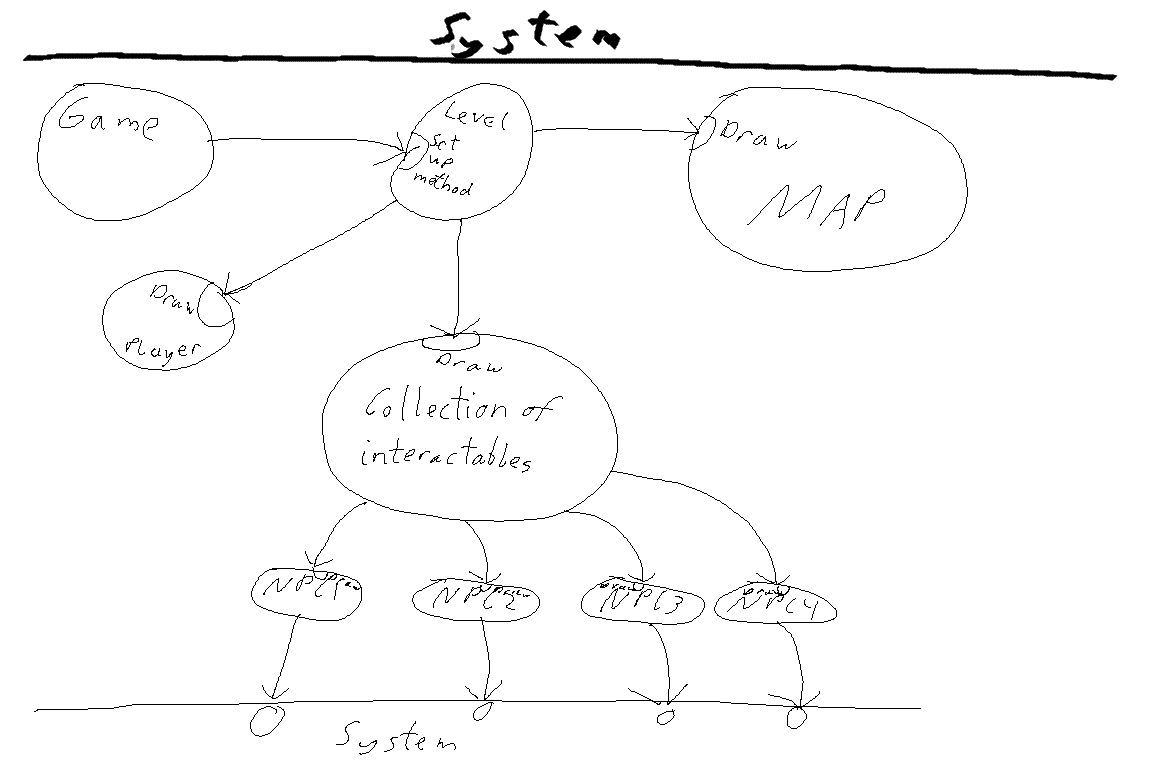 System
Game
Level
Set
up
method
Draw
MAP
Draw
Player
Draw
Collection of
interactables
NPC1 Draw
NPC2 Draw
Draw
NPC3
Draw
NPC4
System